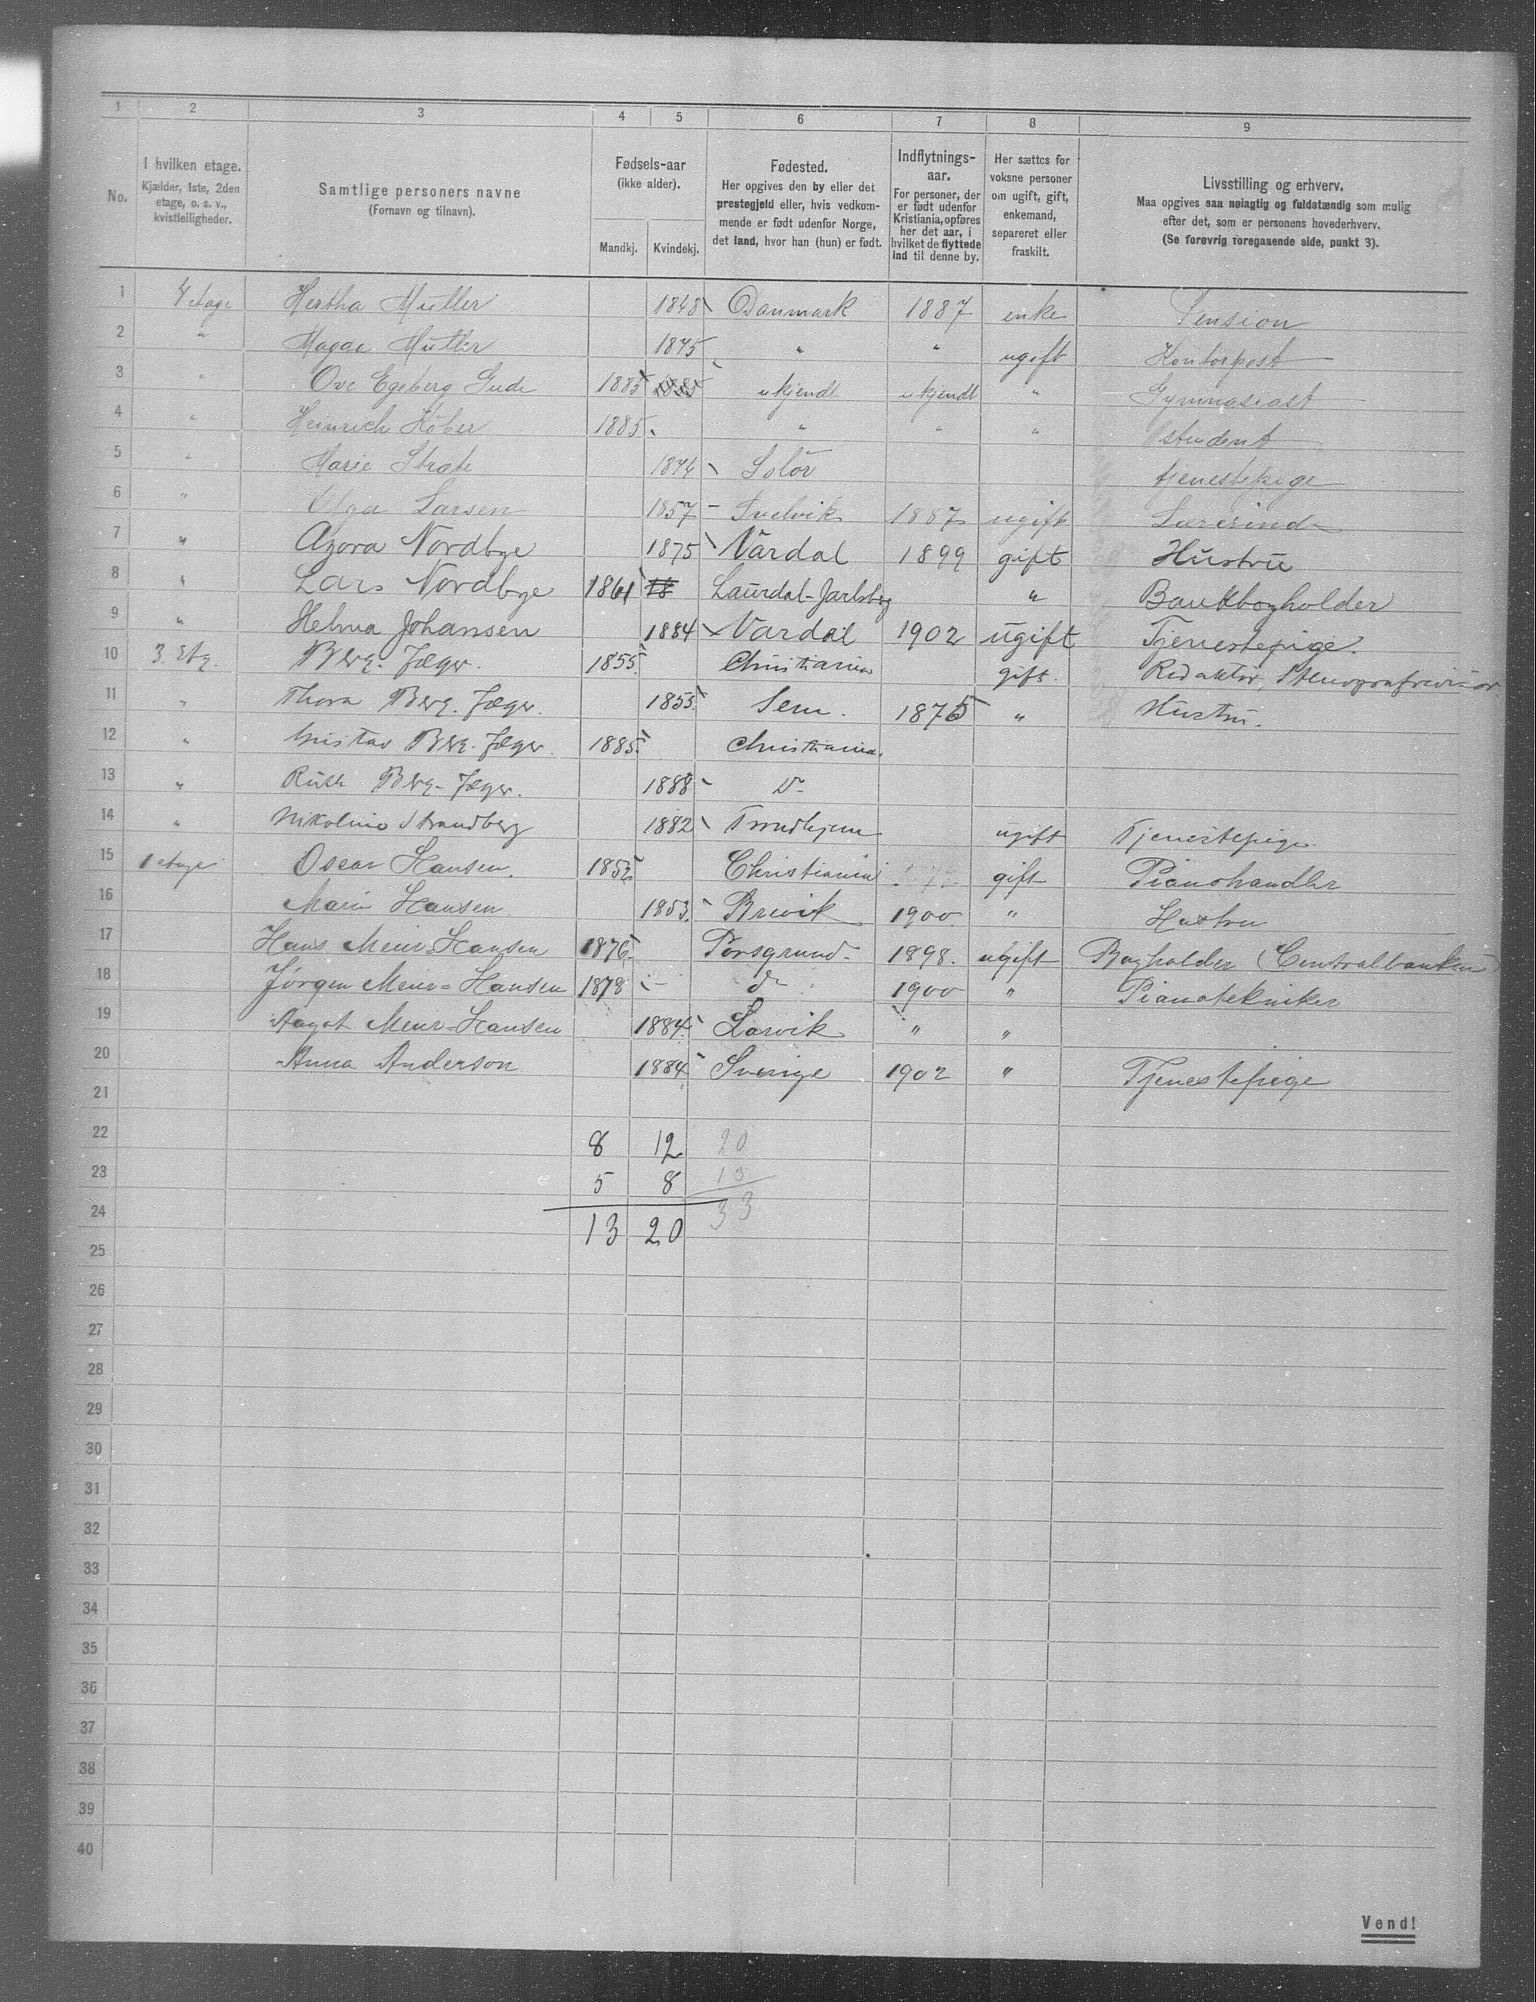 1 2 3 4 5 6 7 8 9
No.
I hvilken etage.
Kjælder, 1ste, 2den
etage, o. s. v.,
kvistleiligheder.
Samtlige personers navne
(Fornavn og tilnavn).
Fødsels-aar
(ikke alder).
Mandkj. Kvindekj.
Fødested.
Her opgives den by eller det
prestegjeld eller, hvis vedkom-
mende er født udenfor Norge,
det land, hvor han (hun) er født.
Indflytnings-
aar.
For personer, der
er født udenfor
Kristiania, opføres
her det aar, i
hvilket de flyttede
ind til denne by.
Her sættes for
voksne personer
om ugift, gift,
enkemand,
separeret eller
fraskilt.
Livsstilling og erhverv.
Maa opgives saa nøiagtig og fuldstændig som mulig
efter det, som er personens hovederhverv.
(Se forøvrig foregaaende side, punkt 3).
1 4 etage Hertha Muller 1848 Danmark 1887 enke Pension
2 " Magda Muller 1875 " " ugift Kontorpost
3 " Ove Egeberg Gude 1885 1885 ukjendt ukjendt " Gymnasiast
4 " Heinrich Köber 1885 " " " student
5 " Marie 1874 Solör tjenestepige
6 " Olga Larsen 1857 Svelvik 1887 ugift Lærerinde
7 " Azora Nordbye 1875 Vardal 1899 gift Hustru
8 " Lars Nordbye 1861 18 Laurdal-Jarlsberg " Bankbogholder
9 " Helma Johansen 1884 Vardal 1902 ugift Tjenestepige.
10 3. Etg. Berg-Jæger. 1855 Christiania gift. Redaktör, Stenografrevisor
11 " Thora Berg-Jæger. 1855 Sem. 1875 " Hustru.
12 " Gustav Berg-Jæger. 1885 Christiania.
13 " Ruth Berg-Jæger. 1888 Do
14 " Nikoline Strandberg 1882 Trondhjem ugift Tjenestepige.
15 1 etage Oscar Hansen. 1852 Christiania gift Pianohandler
16 Marie Hansen 1853. Brevik 1900 " Hustru
17 Hans Meier-Hansen 1876 Porsgrund 1898. ugift Bogholder (Centralbanken)
18 Jørgen Meier-Hansen 1878 do 1900 " Pianotekniker
19 Aagot Meier-Hansen 1884 Larvik " "
20 Anna Anderson 1884 Sverige 1902 " Tjenestepige
21
22 8 12 20
23 5 8 13
24 13 20 33
25
26
27
28
29
30
31
32
33
34
35
36
37
38
39
40
Vend!